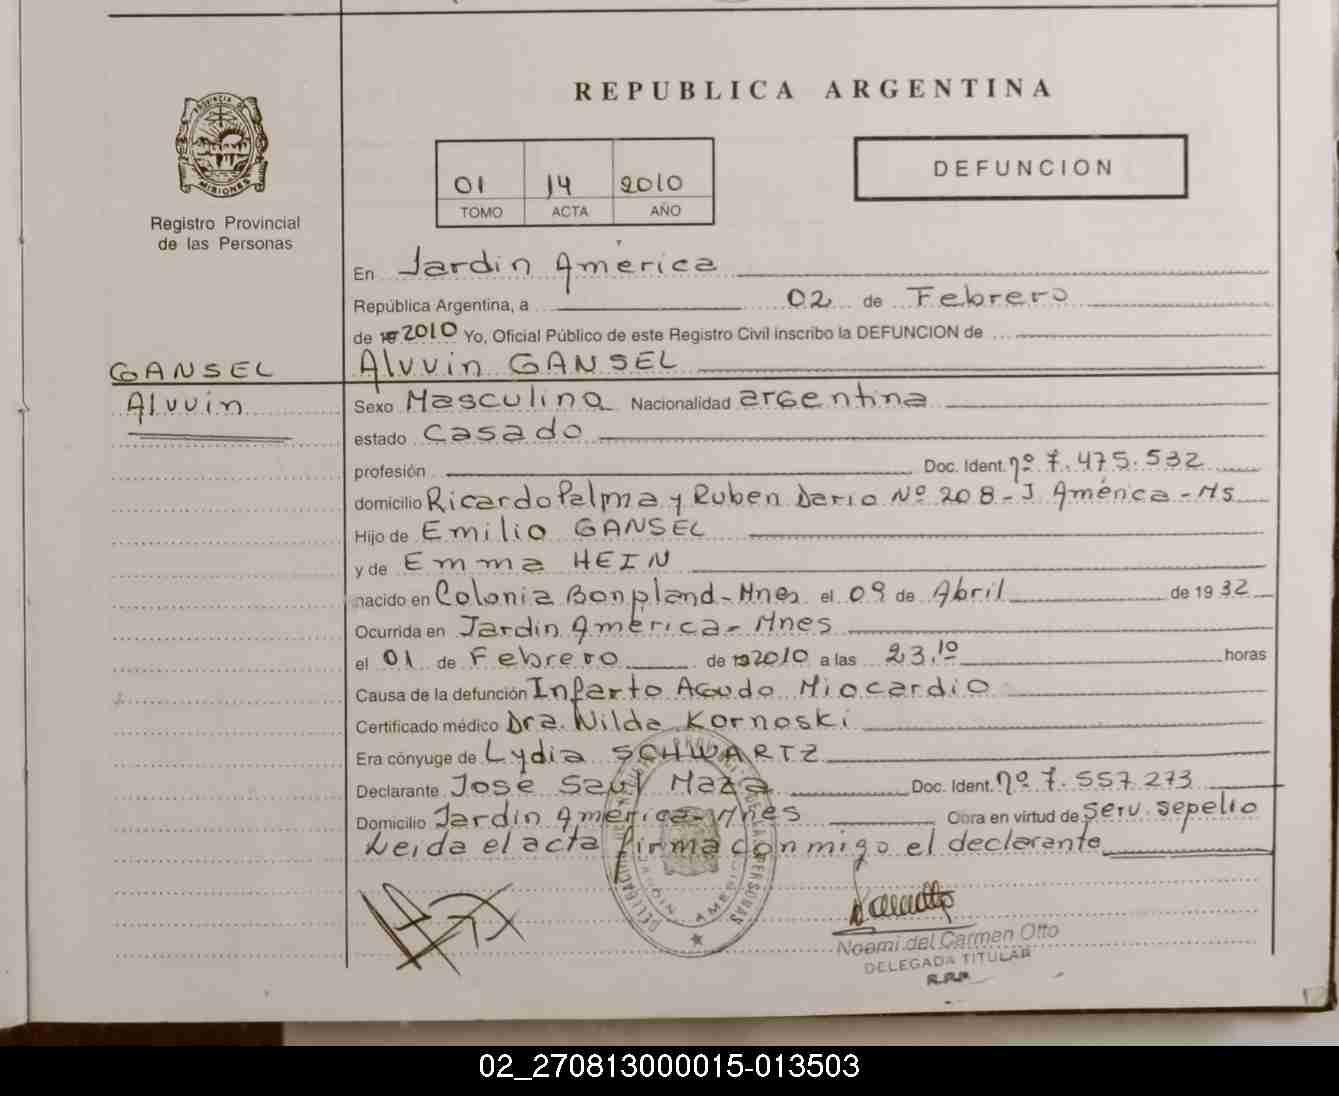 REPUBLICA ARGENTINA
PROVINCIA DE
MISIONES
Registro Provincial
de las Personas
01 14 2010
TOMO ACTA AÑO
DEFUNCION
En Jardin América
República Argentina, a 02 de Febrero
de 2010 Yo, Oficial Público de este Registro Civil inscribo la DEFUNCION de
GANSEL
Alvvin
Alvvin GANSEL
Sexo Masculino Nacionalidad argentina
estado Casado
profesión Doc. Ident. nº 7.475.532
domicilio Ricardo Palma y Ruben Dario Nº 208 - J. América - Ms
Hijo de Emilio GANSEL
y de Emma HEIN
nacido en Colonia Bonpland - Mnes el 09 de Abril de 1932
Ocurrida en Jardin América - Mnes
el 01 de Febrero de 2010 a las 23.10 horas
Causa de la defunción Infarto Agudo Miocardio
Certificado médico Dra. Nilda Kornoski
Era cónyuge de Lydia SCHWARTZ
Declarante Jose Saul Maza Doc. Ident. nº 7.557.273
Domicilio Jardin América - Mnes Obra en virtud de Serv. Sepelio
Leida el acta firma conmigo el declarante
Noemi del Carmen Otto
DELEGADA TITULAR
R.P.P.
02_270813000015-013503